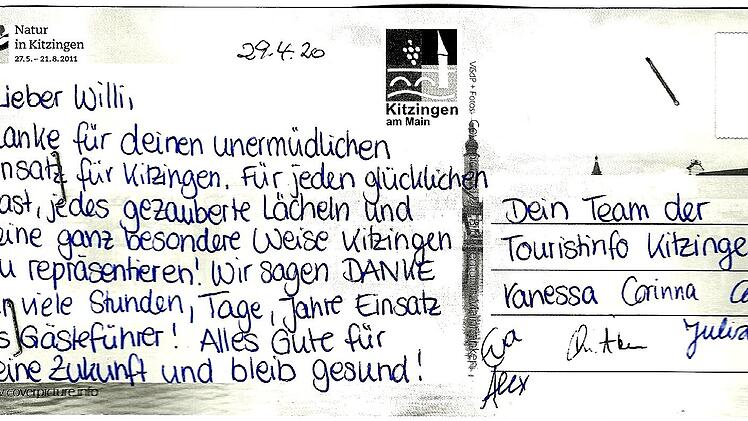 Natur
in Kitzingen
27.5. – 21.8.2011
29.4.20
Kitzingen
am Main
ieber Willi,
anke für deinen unermüdlichen
insatz für Kitzingen. Für jeden glücklichen
ast, jedes gezauberte Lächeln und
eine ganz besondere Weise Kitzingen
u repräsentieren! Wir sagen DANKE
viele Stunden, Tage, Jahre Einsatz
s Gästeführer! Alles Gute für
eine Zukunft und bleib gesund!
coverpicture.info
ViSdP + Fotos:
Dein Team der
Touristinfo Kitzinge
Vanessa Corinna
Julia
Eva
Alex